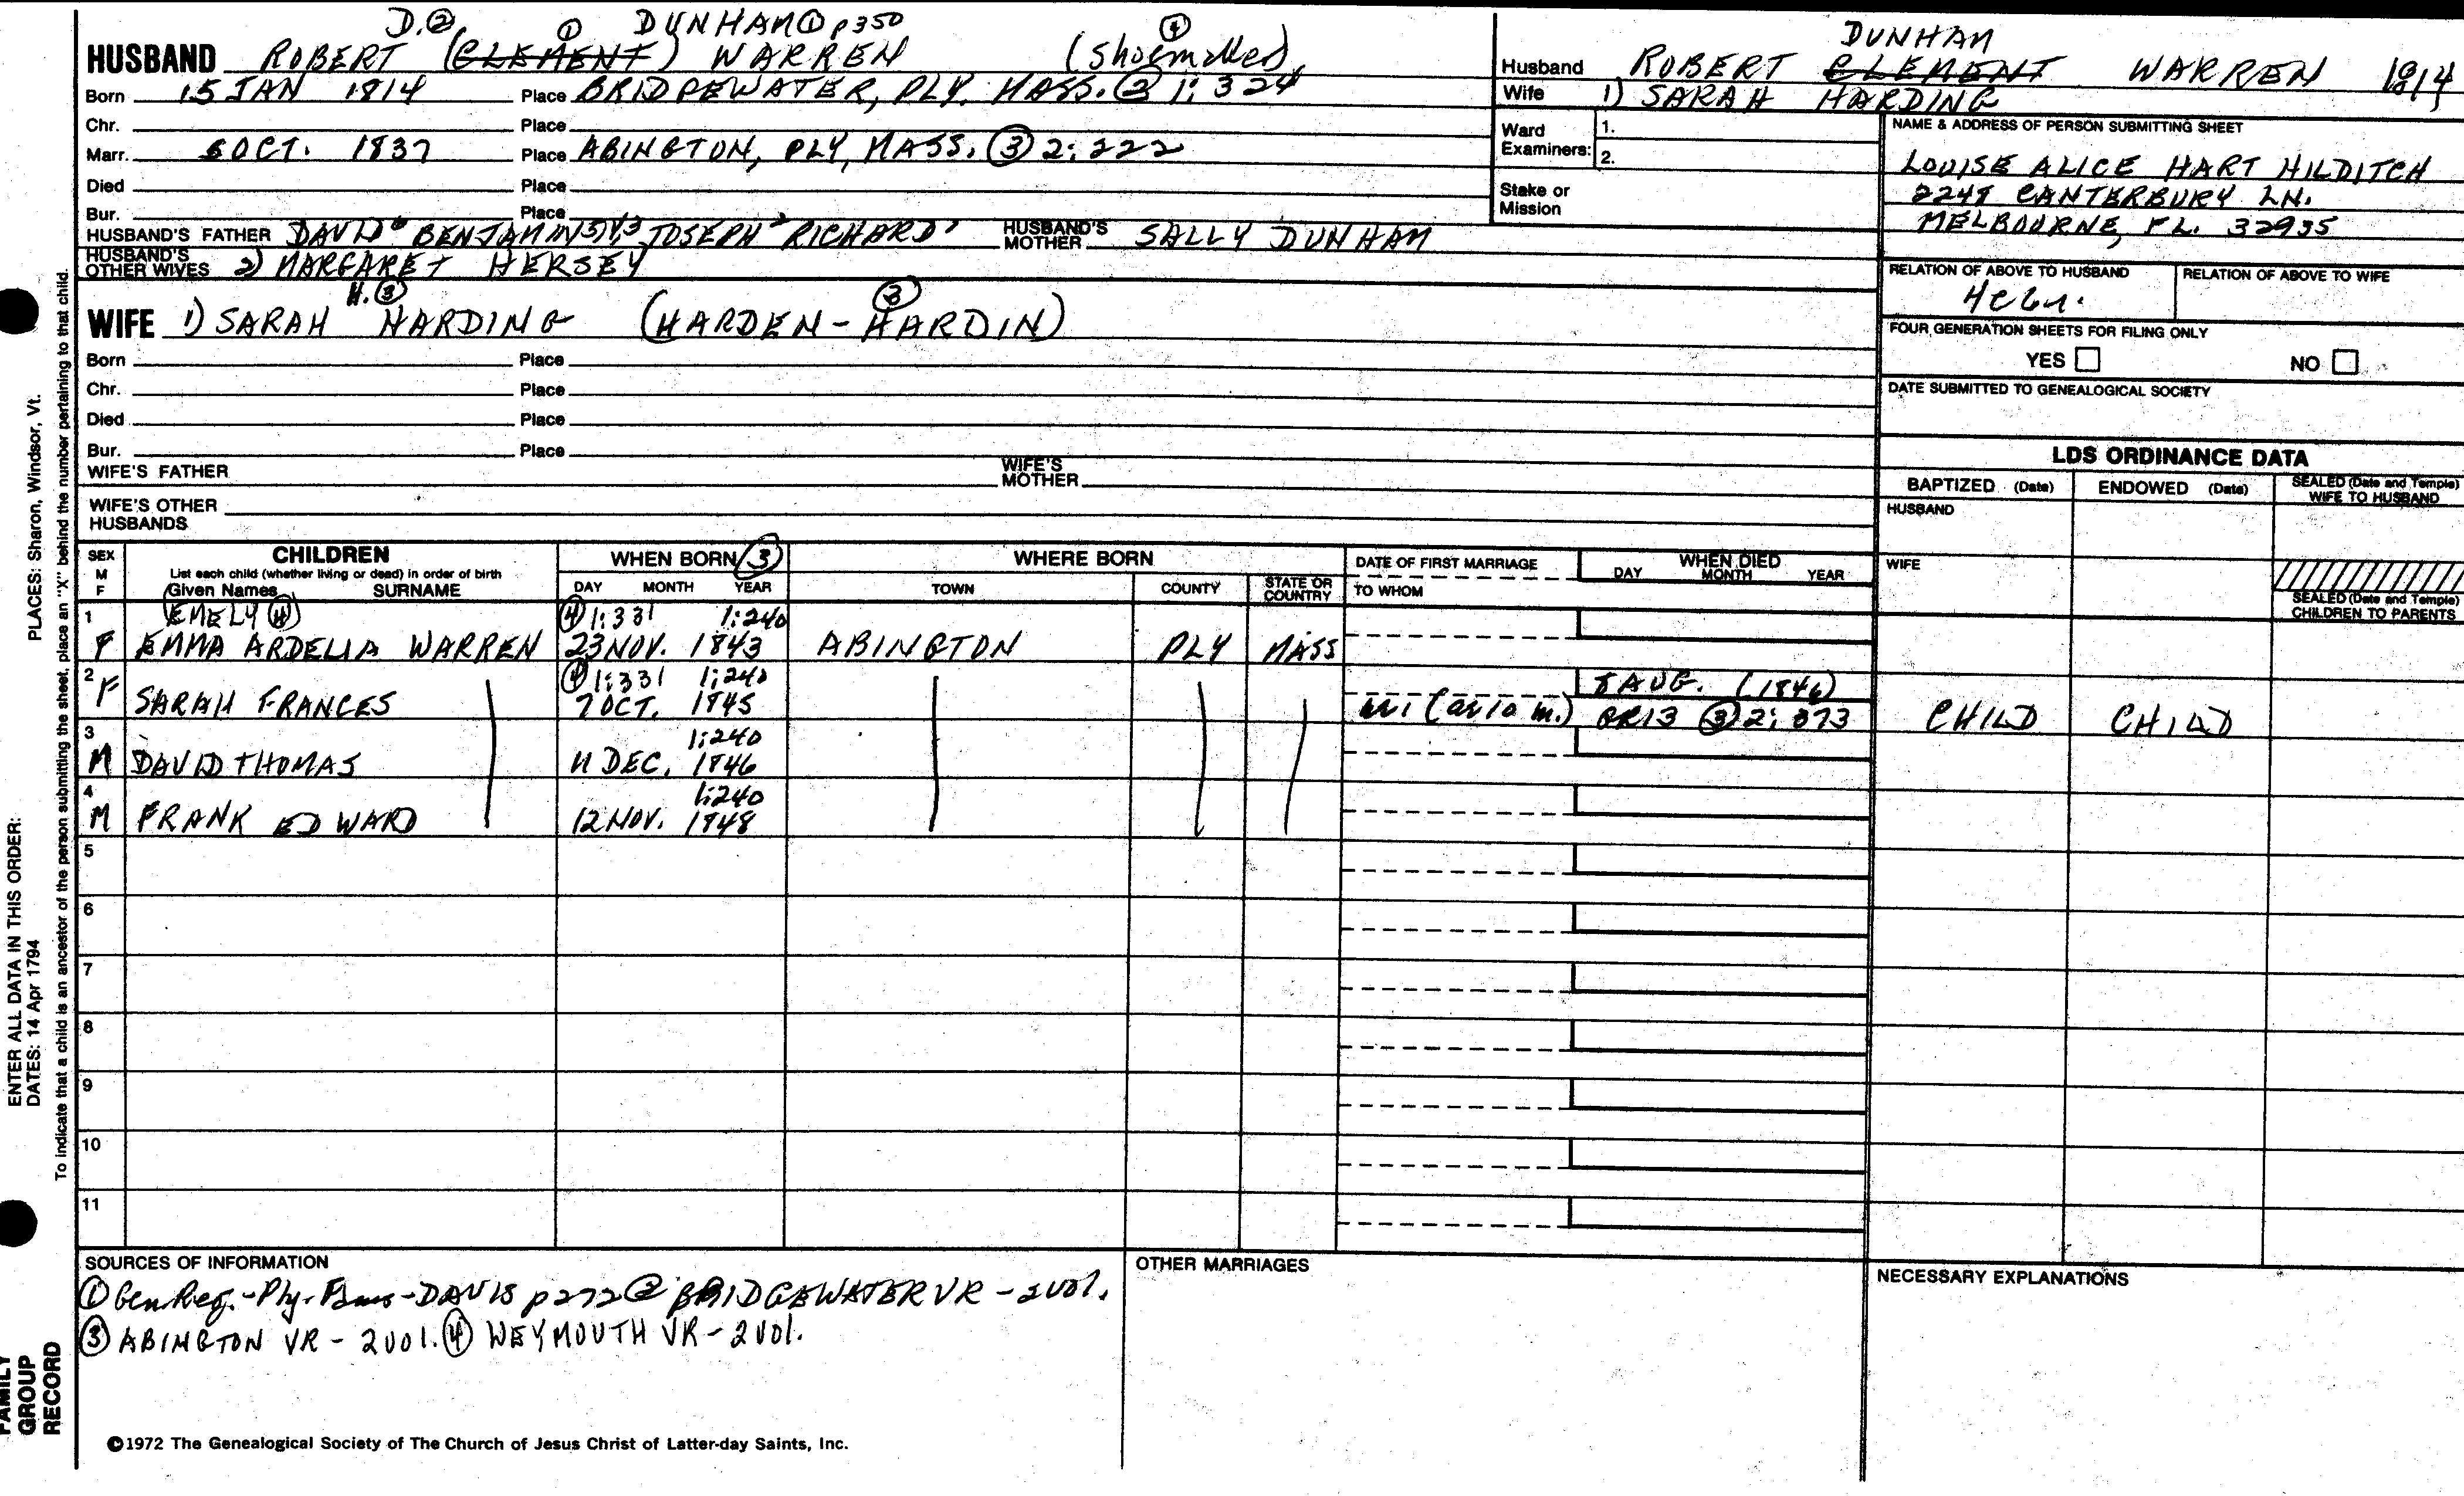 D.② ① DUNHAM① p350 ④
HUSBAND ROBERT (CLEMENT) WARREN (Shoemaker)
Born 15 JAN 1814 Place BRIDGEWATER, PLY, MASS. ② 1:324
Chr. Place
Marr. 8 OCT. 1837 Place ABINGTON, PLY, MASS. ③ 2:222
Died Place
Bur. Place
HUSBAND'S FATHER DAVID BENJAMIN JOSEPH RICHARD HUSBAND'S MOTHER SALLY DUNHAM
HUSBAND'S OTHER WIVES 2) MARGARET HERSEY
H.③ ③
WIFE 1) SARAH HARDING (HARDEN-HARDIN)
Born Place
Chr. Place
Died Place
Bur. Place
WIFE'S FATHER WIFE'S MOTHER
WIFE'S OTHER HUSBANDS
DUNHAM
Husband ROBERT CLEMENT WARREN 1814
Wife 1) SARAH HARDING
Ward Examiners: 1.
2.
Stake or Mission
NAME & ADDRESS OF PERSON SUBMITTING SHEET
LOUISE ALICE HART HILDITCH
CANTERBURY LN.
MELBOURNE, FL. 32935
RELATION OF ABOVE TO HUSBAND RELATION OF ABOVE TO WIFE
FOUR GENERATION SHEETS FOR FILING ONLY
YES NO
DATE SUBMITTED TO GENEALOGICAL SOCIETY
LDS ORDINANCE DATA
BAPTIZED (Date) ENDOWED (Date) SEALED (Date and Temple) WIFE TO HUSBAND
HUSBAND
WIFE
SEALED (Date and Temple) CHILDREN TO PARENTS
SEX M F CHILDREN WHEN BORN ③ WHERE BORN DATE OF FIRST MARRIAGE WHEN DIED
List each child (whether living or dead) in order of birth
Given Names SURNAME DAY MONTH YEAR TOWN COUNTY STATE OR COUNTRY TO WHOM DAY MONTH YEAR
1 EMELY ④ ④ 1:331 1:240
F EMMA ARDELIA WARREN 23 NOV. 1843 ABINGTON PLY MASS
2 ④ 1:331 1:240 8 AUG. (1846)
F SARAH FRANCES 7 OCT. 1845 ③ 2: CHILD CHILD
3 1:240
M DAVID THOMAS 11 DEC. 1846
4 1:240
M FRANK EDWARD 12 NOV. 1848
5
6
7
8
9
10
11
SOURCES OF INFORMATION
① Gen. Reg.-Ply. Fams-DAVIS p272 ② BRIDGEWATER VR - 2 vol.
③ ABINGTON VR - 2 vol. ④ WEYMOUTH VR - 2 vol.
OTHER MARRIAGES
NECESSARY EXPLANATIONS
©1972 The Genealogical Society of The Church of Jesus Christ of Latter-day Saints, Inc.
PLACES: Sharon, Windsor, Vt.
ENTER ALL DATA IN THIS ORDER:
DATES: 14 Apr 1794
To indicate that a child is an ancestor of the person submitting the sheet, place an "X" behind the number pertaining to that child.
FAMILY
GROUP
RECORD